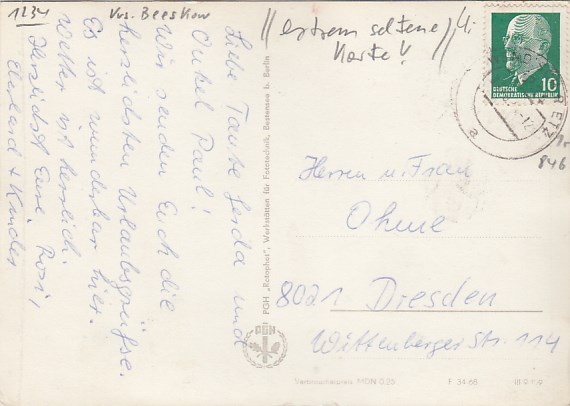 1234
Krs. Beeskow
// extrem seltene //
Karte!
Liebe Tante Gerda und
Onkel Paul!
Wir senden Euch die
herzlichsten Urlaubsgrüße.
Es ist wunderbar hier.
Wetter ist herrlich.
Herzlichst Eure Rosi,
Eberhard + Kinder
PGH „Rotophot", Werkstätten für Fototechnik, Bestensee b. Berlin
PGH
10
DEUTSCHE
DEMOKRATISCHE REPUBLIK
RETZ
a
846
Herrn u. Frau
Ohme
8021 Dresden
Wittenberger Str. 114
Verbraucherpreis MDN 0,25
F 34 68